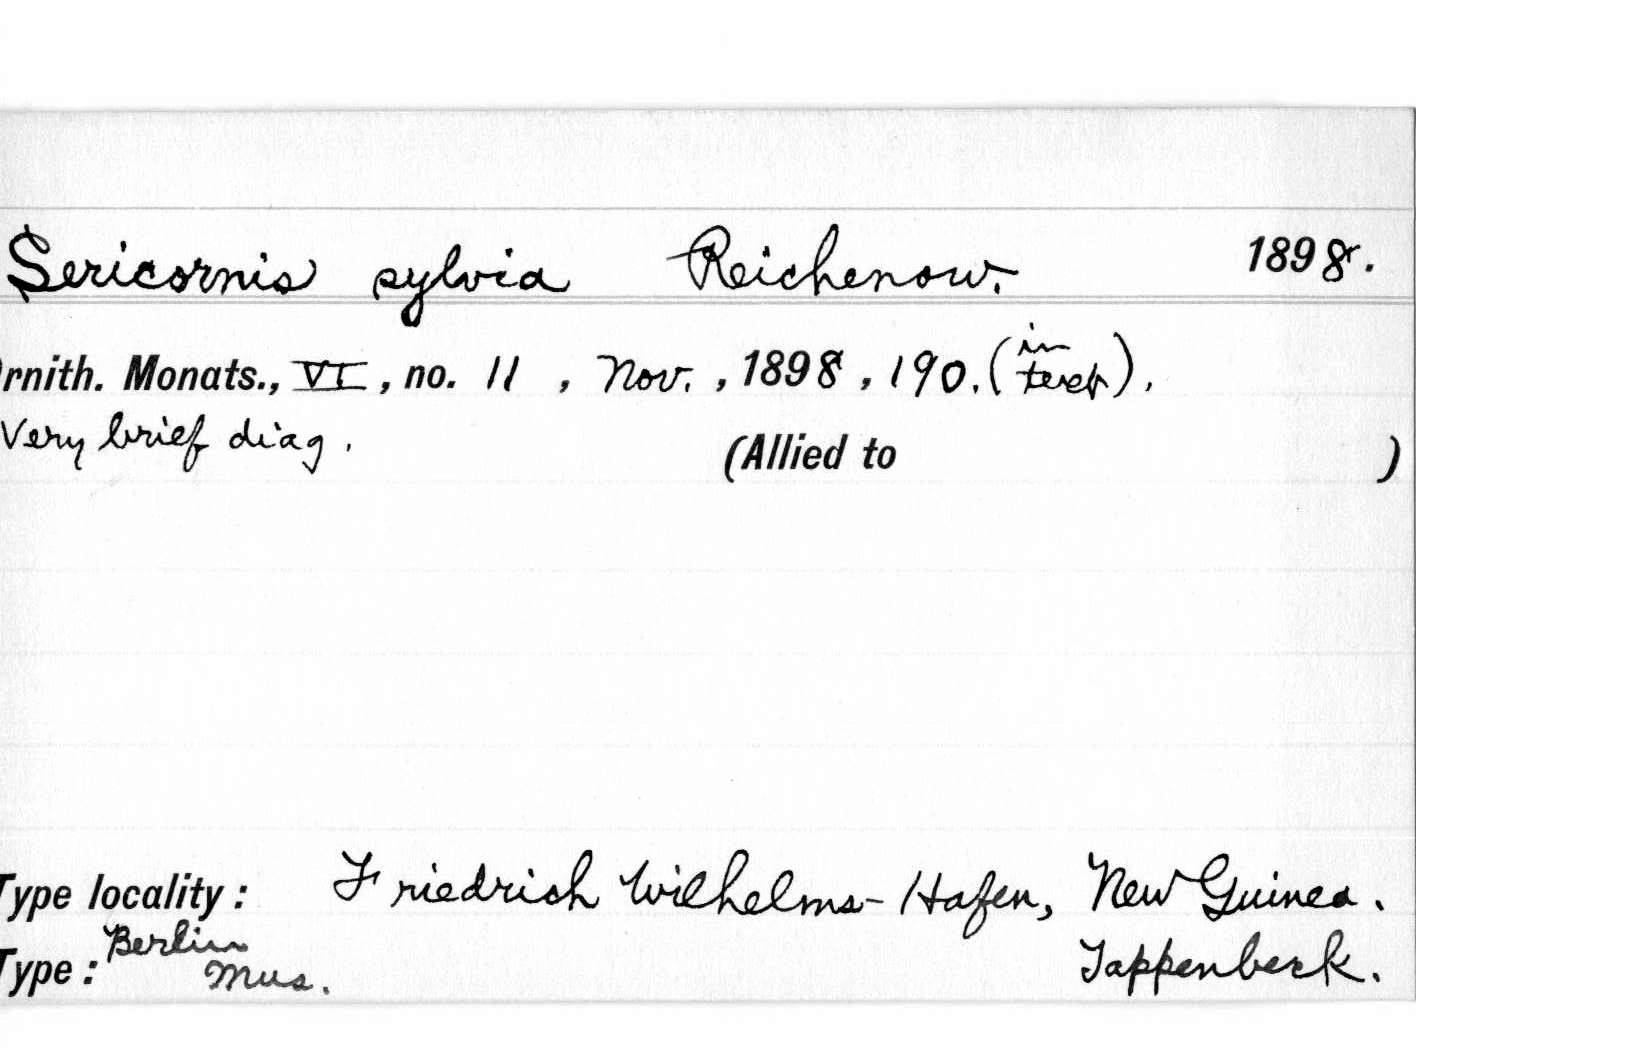 Sericornis sylvia Reichenow. 1898.
rnith. Monats., VI, no. 11, Nov., 1898, 190. (in text).
Very brief diag. (Allied to )
Type locality: Friedrich Wilhelms-Hafen, New Guinea.
Type: Berlin Mus. Tappenbeck.